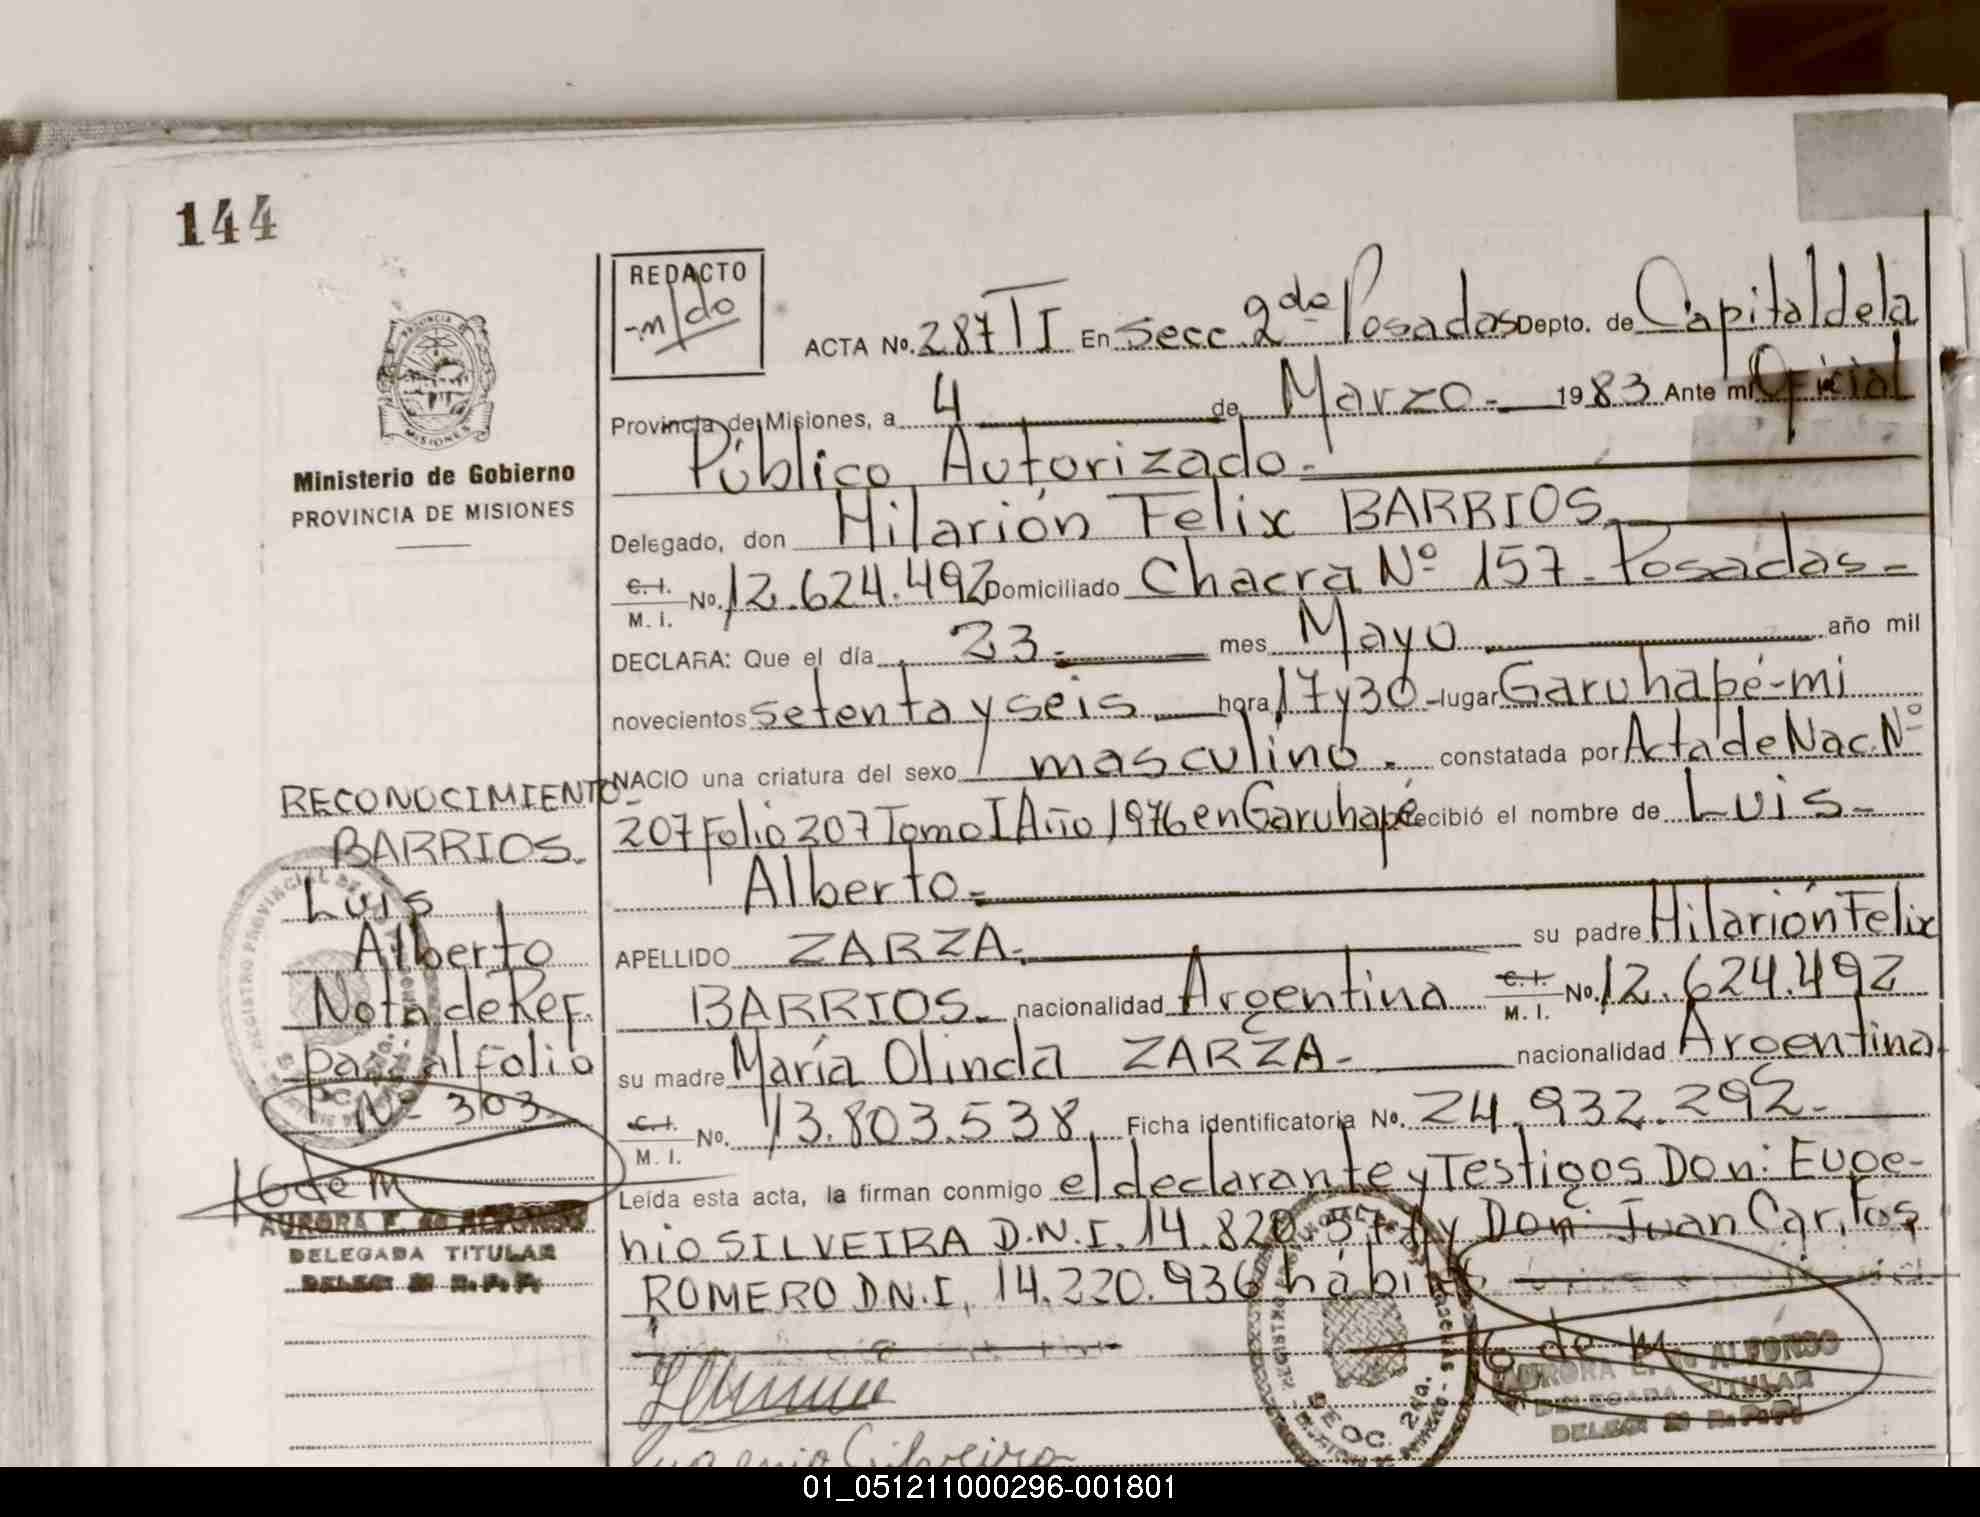 144
REDACTO
-m/do
ACTA No. 287 TI En Secc. 2da Posadas Depto. de Capital de la
Provincia de Misiones, a 4 de Marzo - 1983 Ante mi Oficial
Público Autorizado.-
Delegado, don Hilarión Felix BARRIOS.
C. I. M. I. No. 12.624.492 Domiciliado Chacra Nº 157 - Posadas -
DECLARA: Que el día 23 - mes Mayo año mil
novecientos setenta y seis hora 17 y 30 - lugar Garuhapé-mi
NACIO una criatura del sexo masculino. constatada por Acta de Nac. Nº
207 Folio 207 Tomo I Año 1976 en Garuhapé recibió el nombre de Luis -
Alberto -
APELLIDO ZARZA - su padre Hilarión Felix
BARRIOS. nacionalidad Argentina C. I. M. I. No. 12.624.492
su madre María Olinda ZARZA - nacionalidad Argentina
C. I. M. I. No. 13.803.538 Ficha identificatoria No. 24.932.292 -
Leída esta acta, la firman conmigo el declarante y Testigos Don: Euge-
nio SILVEIRA D.N.I. 14.820.571 y Don: Juan Carlos
ROMERO D.N.I. 14.220.936 hábi
Eugenio Silveira
PROVINCIA DE MISIONES
Ministerio de Gobierno
PROVINCIA DE MISIONES
RECONOCIMIENTO-
BARRIOS.
Luis
Alberto
Nota de Ref.
pasa al Folio
Nº 303.
AURORA E. de ALFONSO
DELEGADA TITULAR
DELEG. R.P.P.
REGISTRO PROVINCIAL DE LAS PERSONAS
SECC. 2da.
AURORA E. de ALFONSO
DELEGADA TITULAR
DELEG. R.P.P.
01_051211000296-001801